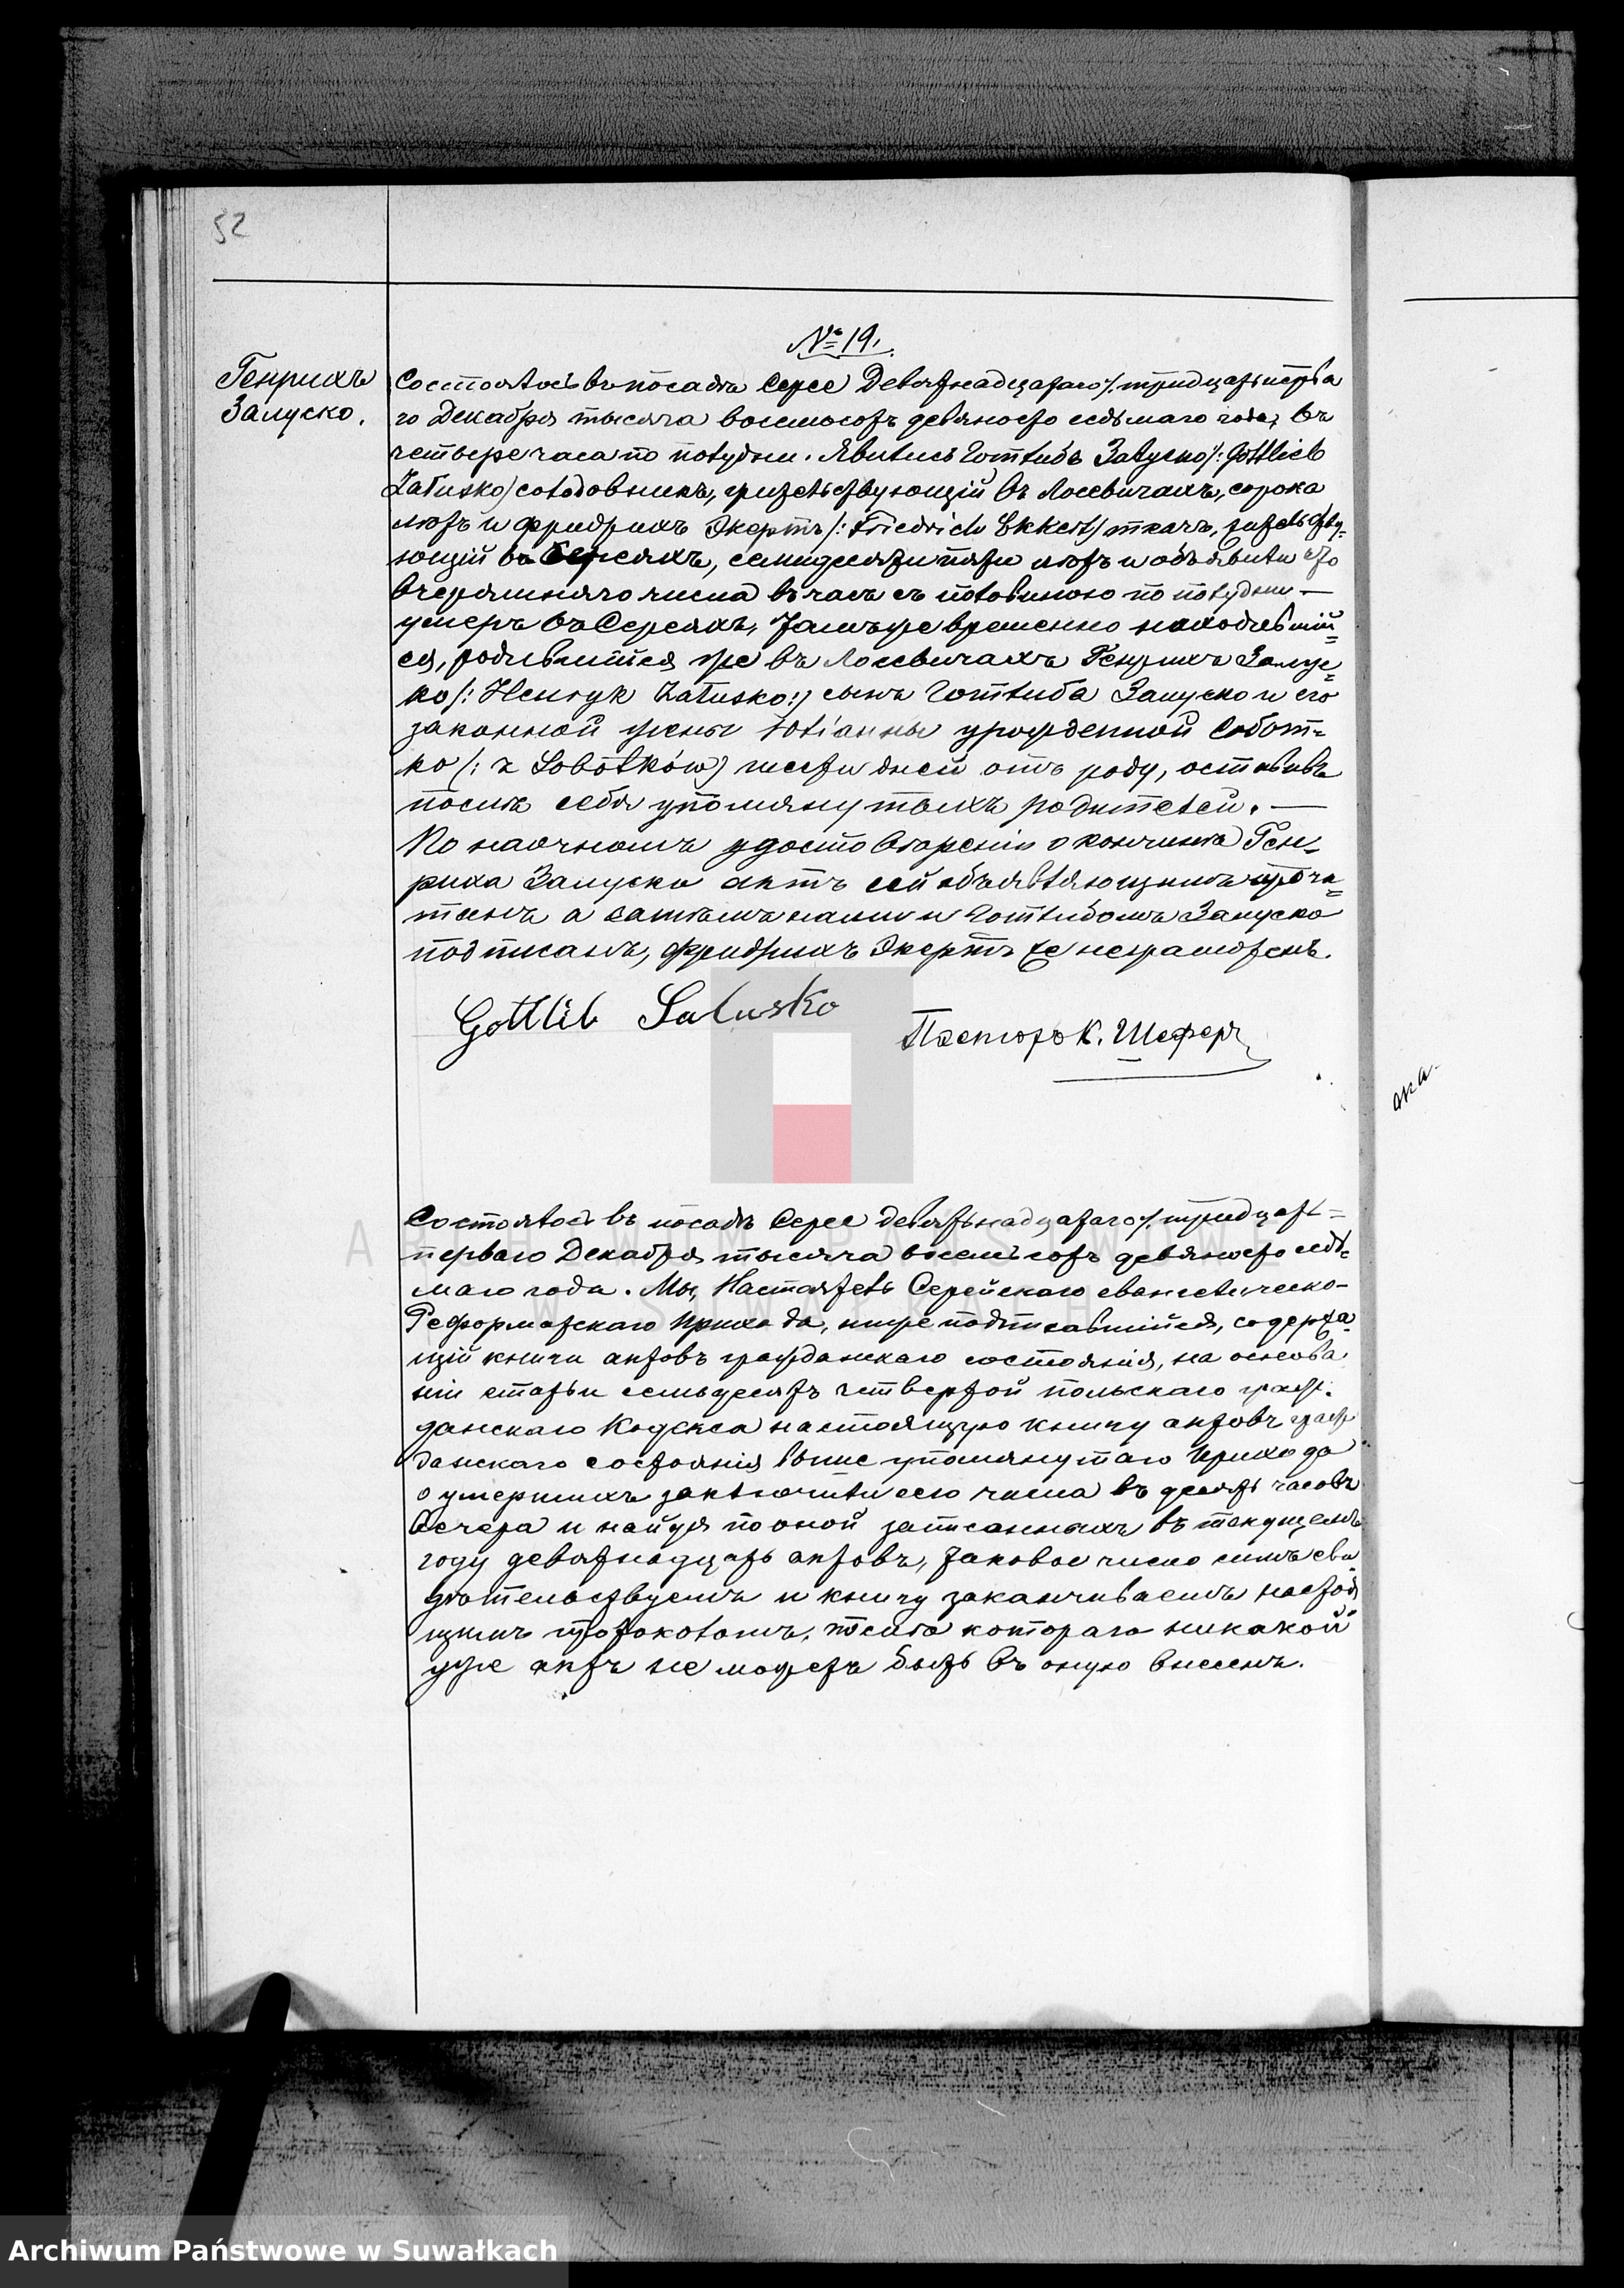 52
№ 19.
Генрихъ
Залуско.
Состоялось въ посадѣ Сереѣ Девятнадцатаго /. тридцать перва
го Декабря тысяча восемьсотъ девяносто седьмаго года, въ
четыре часа по полудни. Явились Готлибъ Залуско /: Gottlieb
Załusko/ солодовникъ, жительствующій въ Лосевичахъ, сорока
лѣтъ и Фридрихъ Экертъ /: Friedrich Ekkert/ ткачъ, жительству=
ющій въ Сереяхъ, семидесяти пяти лѣтъ и объявили что
вчерашняго числа въ часъ съ половиною по полудни —
умеръ въ Сереяхъ, тамъ же временно находившій=
ся, родившійся же въ Лосевичахъ Генрихъ Залус=
ко /: Henryk Załusko:/ сынъ Готлиба Залуско и его
законной жены Юліанны урожденной Собот=
ко /: z Sobotków/ шести дней отъ роду, оставивъ
послѣ себя упомянутыхъ родителей. —
По наочномъ удостовѣреніи о кончинѣ Ген=
риха Залуско актъ сей объявляющимъ прочи=
танъ а затѣмъ нами и Готлибомъ Залуско
подписанъ, Фридрихъ Экертъ же неграмотенъ.
Gottlib Salusko
Пасторъ К. Шеферъ
Состоялось въ посадѣ Сереѣ девятьнадцатаго /. тридцать=
перваго Декабря тысяча восемьсотъ девяносто седь=
маго года. Мы, Настоятель Серейскаго евангелическо-
Реформатскаго прихода, нижеподписавшійся, содержа=
щій книги актовъ гражданскаго состоянія, на основа
ніи статьи семьдесятъ четвертой польскаго граж.
данскаго Кодекса настоящую книгу актовъ граж
данскаго состоянія выше упомянутаго прихода
о умершихъ заключили сего числа въ десять часовъ
вечера и найдя по оной записанныхъ въ текущемъ
году девятнадцать актовъ, таковое число симъ сви
дѣтельствуемъ и книгу заканчиваемъ настоя
щимъ протоколомъ, послѣ котораго никакой
уже актъ не можетъ быть въ оную внесенъ.
ARCHIWUM PAŃSTWOWE
W SUWAŁKACH
Archiwum Państwowe w Suwałkach